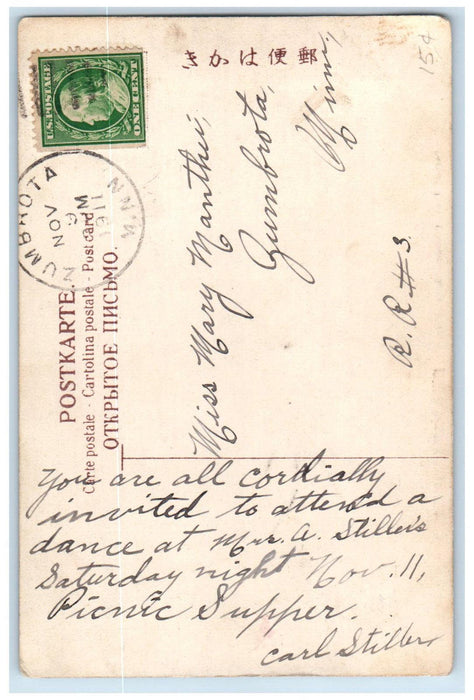 郵便はかき
15¢
U.S. POSTAGE
ONE CENT
ZUMBROTA MINN.
NOV
9
M
1911
POSTKARTE.
Carte postale - Cartolina postale - Post card
ОТКРЫТОЕ ПИСЬМО.
Miss Mary Manthei,
Zumbrota,
Minn,
R. R # 3.
You are all cordially
invited to attend a
dance at Mr. A. Stiller's
Saturday night Nov. 11,
Picnic Supper.
Carl Stiller